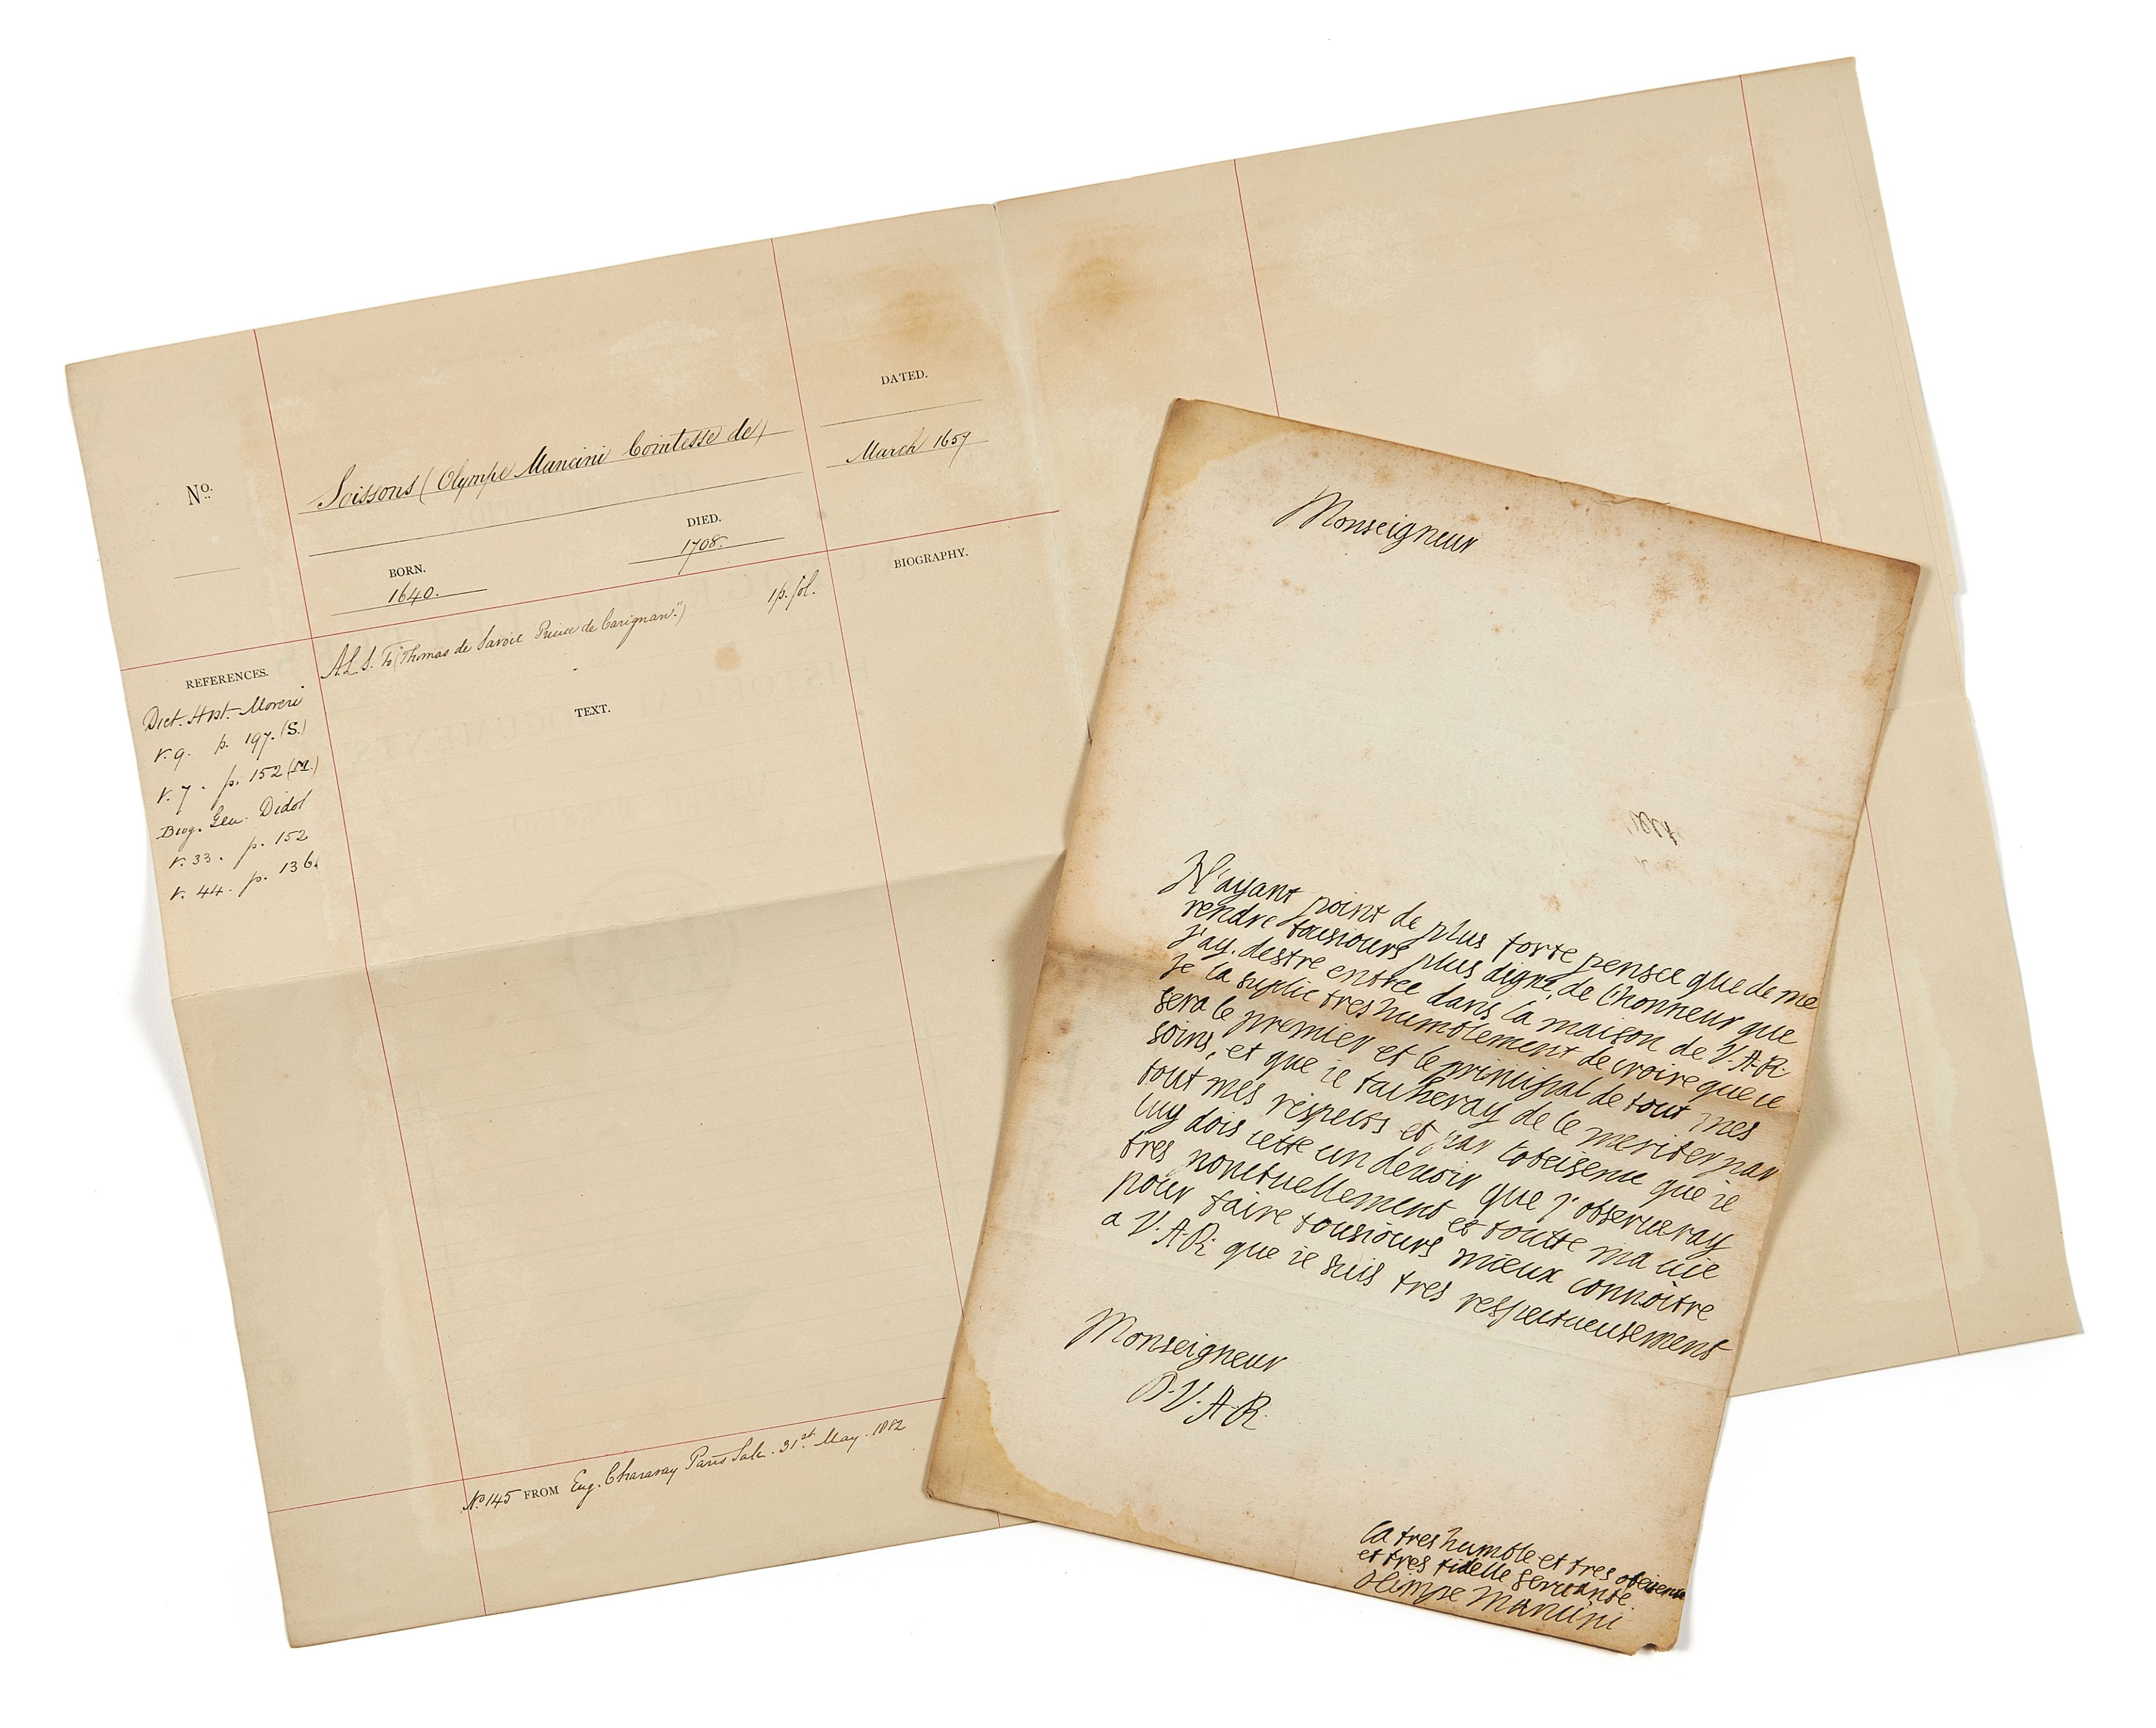 No.
Soissons (Olympe Mancini Comtesse de)
DATED.
March 1657
BORN.
1640.
DIED.
1708.
BIOGRAPHY.
REFERENCES.
Dict. Hist. Moreri
v. 9. p. 197. (S.)
v. 7. p. 152 (M.)
Biog. Gen. Didot
v. 33. p. 152
v. 44. p. 136.
A.L.S. to (Thomas de Savoie Prince de Carignan.") 1 p. fol.
TEXT.
No. 145 FROM Eug. Charavay Paris Sale. 31st. May. 1882
Monseigneur
N'ayant point de plus forte pensee que de me
rendre tousiours plus digne, de l'honneur que
j'ay. destre entree dans la maison de V.A.R.
je la suplie tres humblement de croire que ce
sera le premier et le prinsipal de tout mes
soins, et que ie tacheray de le meriter par
tout mes respects et par l'obeisence que ie
luy dois cette un devoir que j'observeray
tres ponctuellement et toutte ma vie
pour faire tousiours mieux connoitre
a V.A.R. que ie suis tres respectueusement
Monseigneur
D.V.A.R.
la tres humble et tres obeisente
et tres fidelle servante
Olimpe Mancini